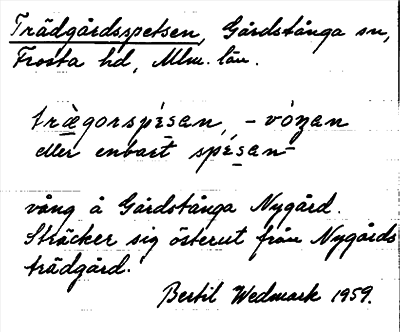 Trädgårdsspetsen, Gårdstånga sn,
Frosta hd, Mlm. län.
trægorspésan, - vóŋan
eller enbart spésan
vång å Gårdstånga Nygård.
Sträcker sig österut från Nygårds
trädgård.
Bertil Wedmark 1959.